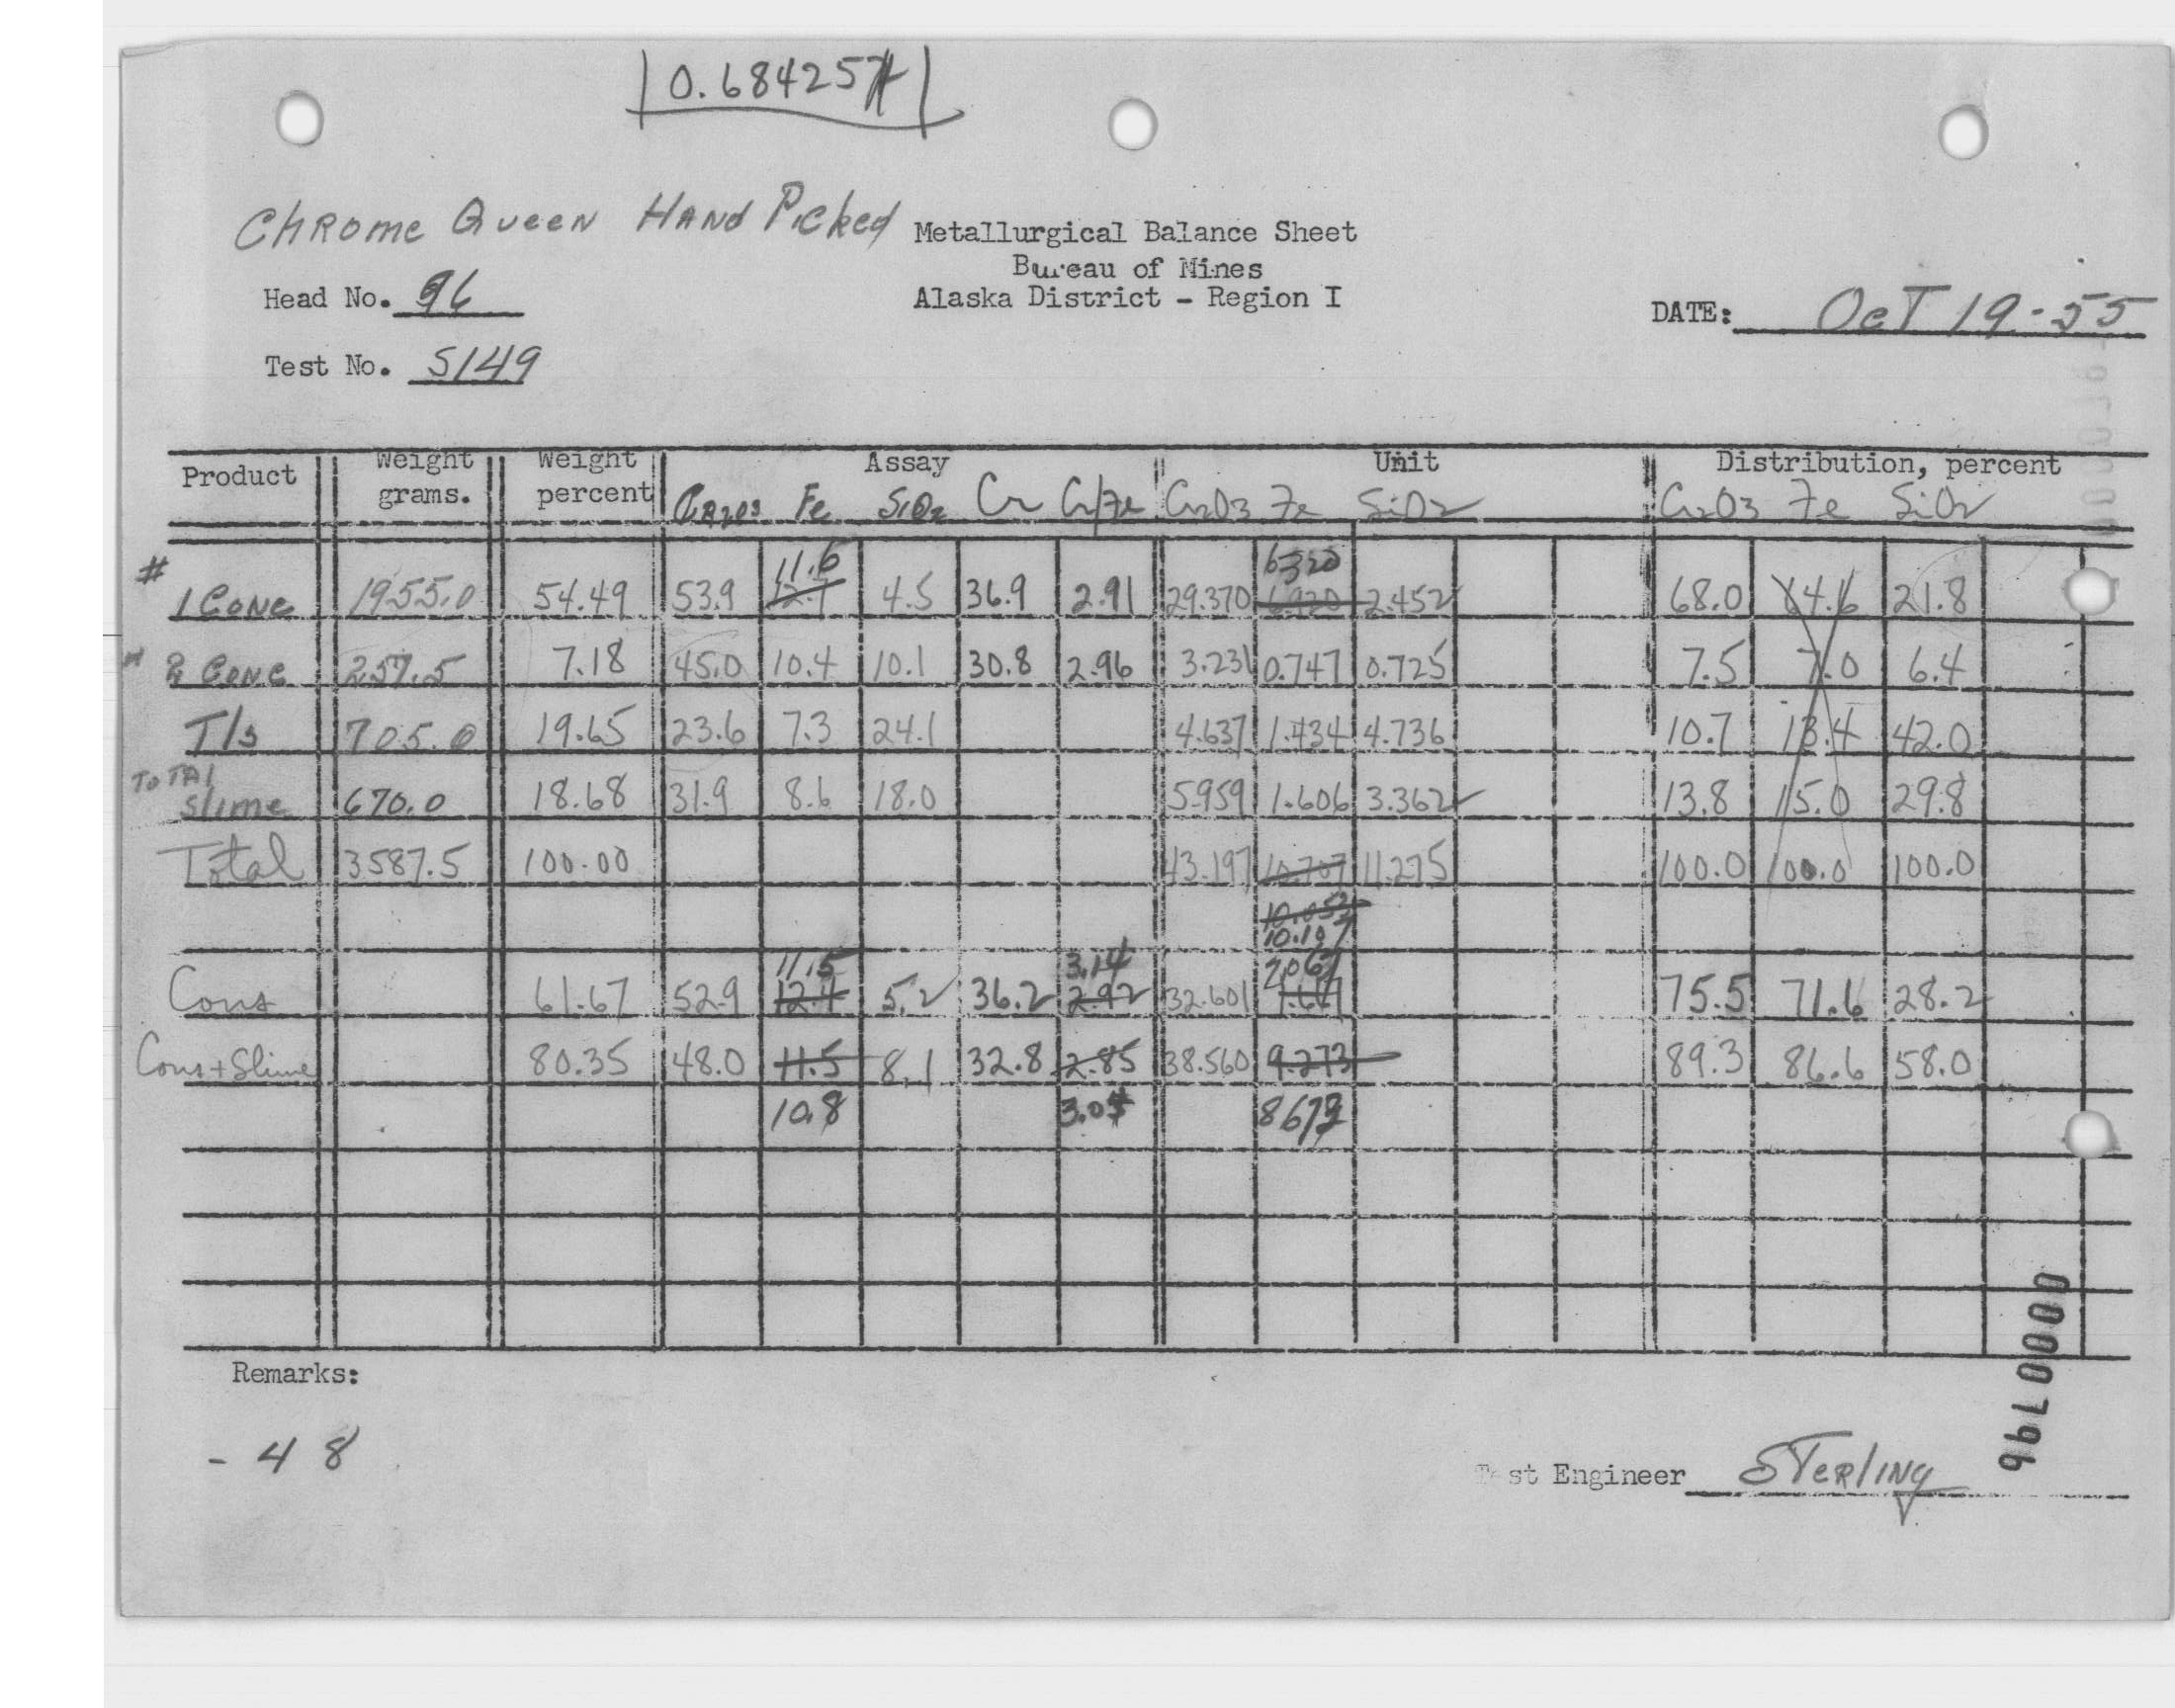 0.684257
Chrome Queen Hand Picked
Metallurgical Balance Sheet
Bureau of Mines
Alaska District - Region I
Head No. 96
DATE: Oct 19-55
Test No. 5149
Product Weight grams. Weight percent Assay Unit Distribution, percent
Cr2O3 Fe SiO2 Cr Cr/Fe Cr2O3 Fe SiO2 Cr2O3 Fe SiO2
11.6 6320
# 1 Conc 1955.0 54.49 53.9 12.7 4.5 36.9 2.91 29.370 6.920 2.452 68.0 64.6 21.8
# 2 Conc 257.5 7.18 45.0 10.4 10.1 30.8 2.96 3.231 0.747 0.725 7.5 7.0 6.4
T/s 705.0 19.65 23.6 7.3 24.1 4.637 1.434 4.736 10.7 13.4 42.0
Total Slime 670.0 18.68 31.9 8.6 18.0 5.959 1.606 3.362 13.8 15.0 29.8
Total 3587.5 100.00 43.197 10.707 11.275 100.0 100.0 100.0
10.107
11.5 3.14 7.067
Cons 61.67 52.9 12.4 5.2 36.2 2.92 32.601 75.5 71.6 28.2
Cons+Slime 80.35 48.0 11.5 8.1 32.8 2.85 38.560 9.273 89.3 86.6 58.0
10.8 3.04 8673
Remarks:
-48
Test Engineer Sterling
0000796